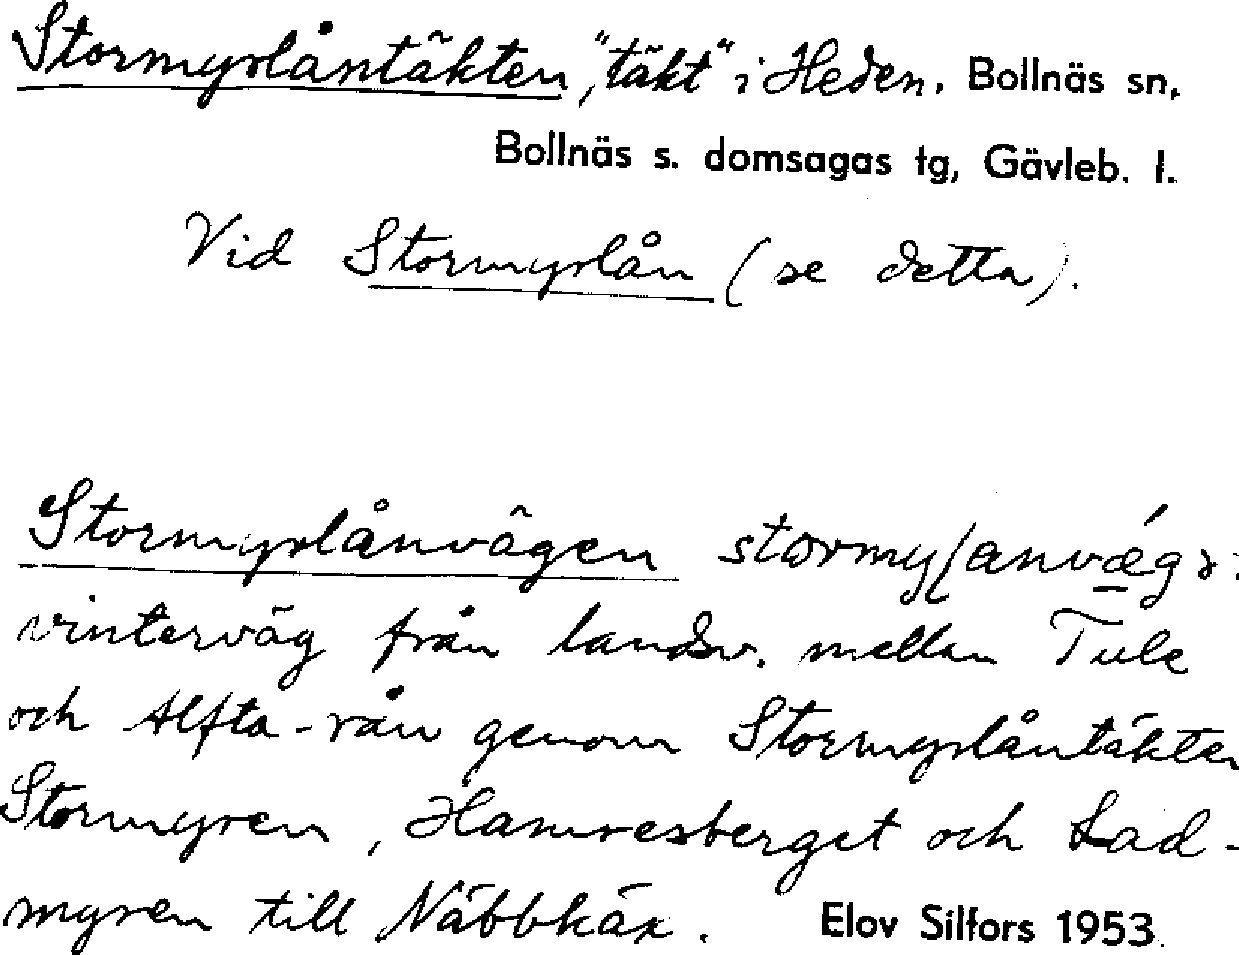 Stormyrlåntäkten, "täkt" i Heden. Bollnäs sn,
Bollnäs s. domsagas tg, Gävleb. l.
Vid Stormyrlån (se detta).
Stormyrlånvägen
vinterväg från landsv. mellan Tule
och Alfta-rån genom Stormyrlåntäkten
Stormyren, Hamresberget och Lad-
myren till Näbbkäx.
Elov Silfors 1953.